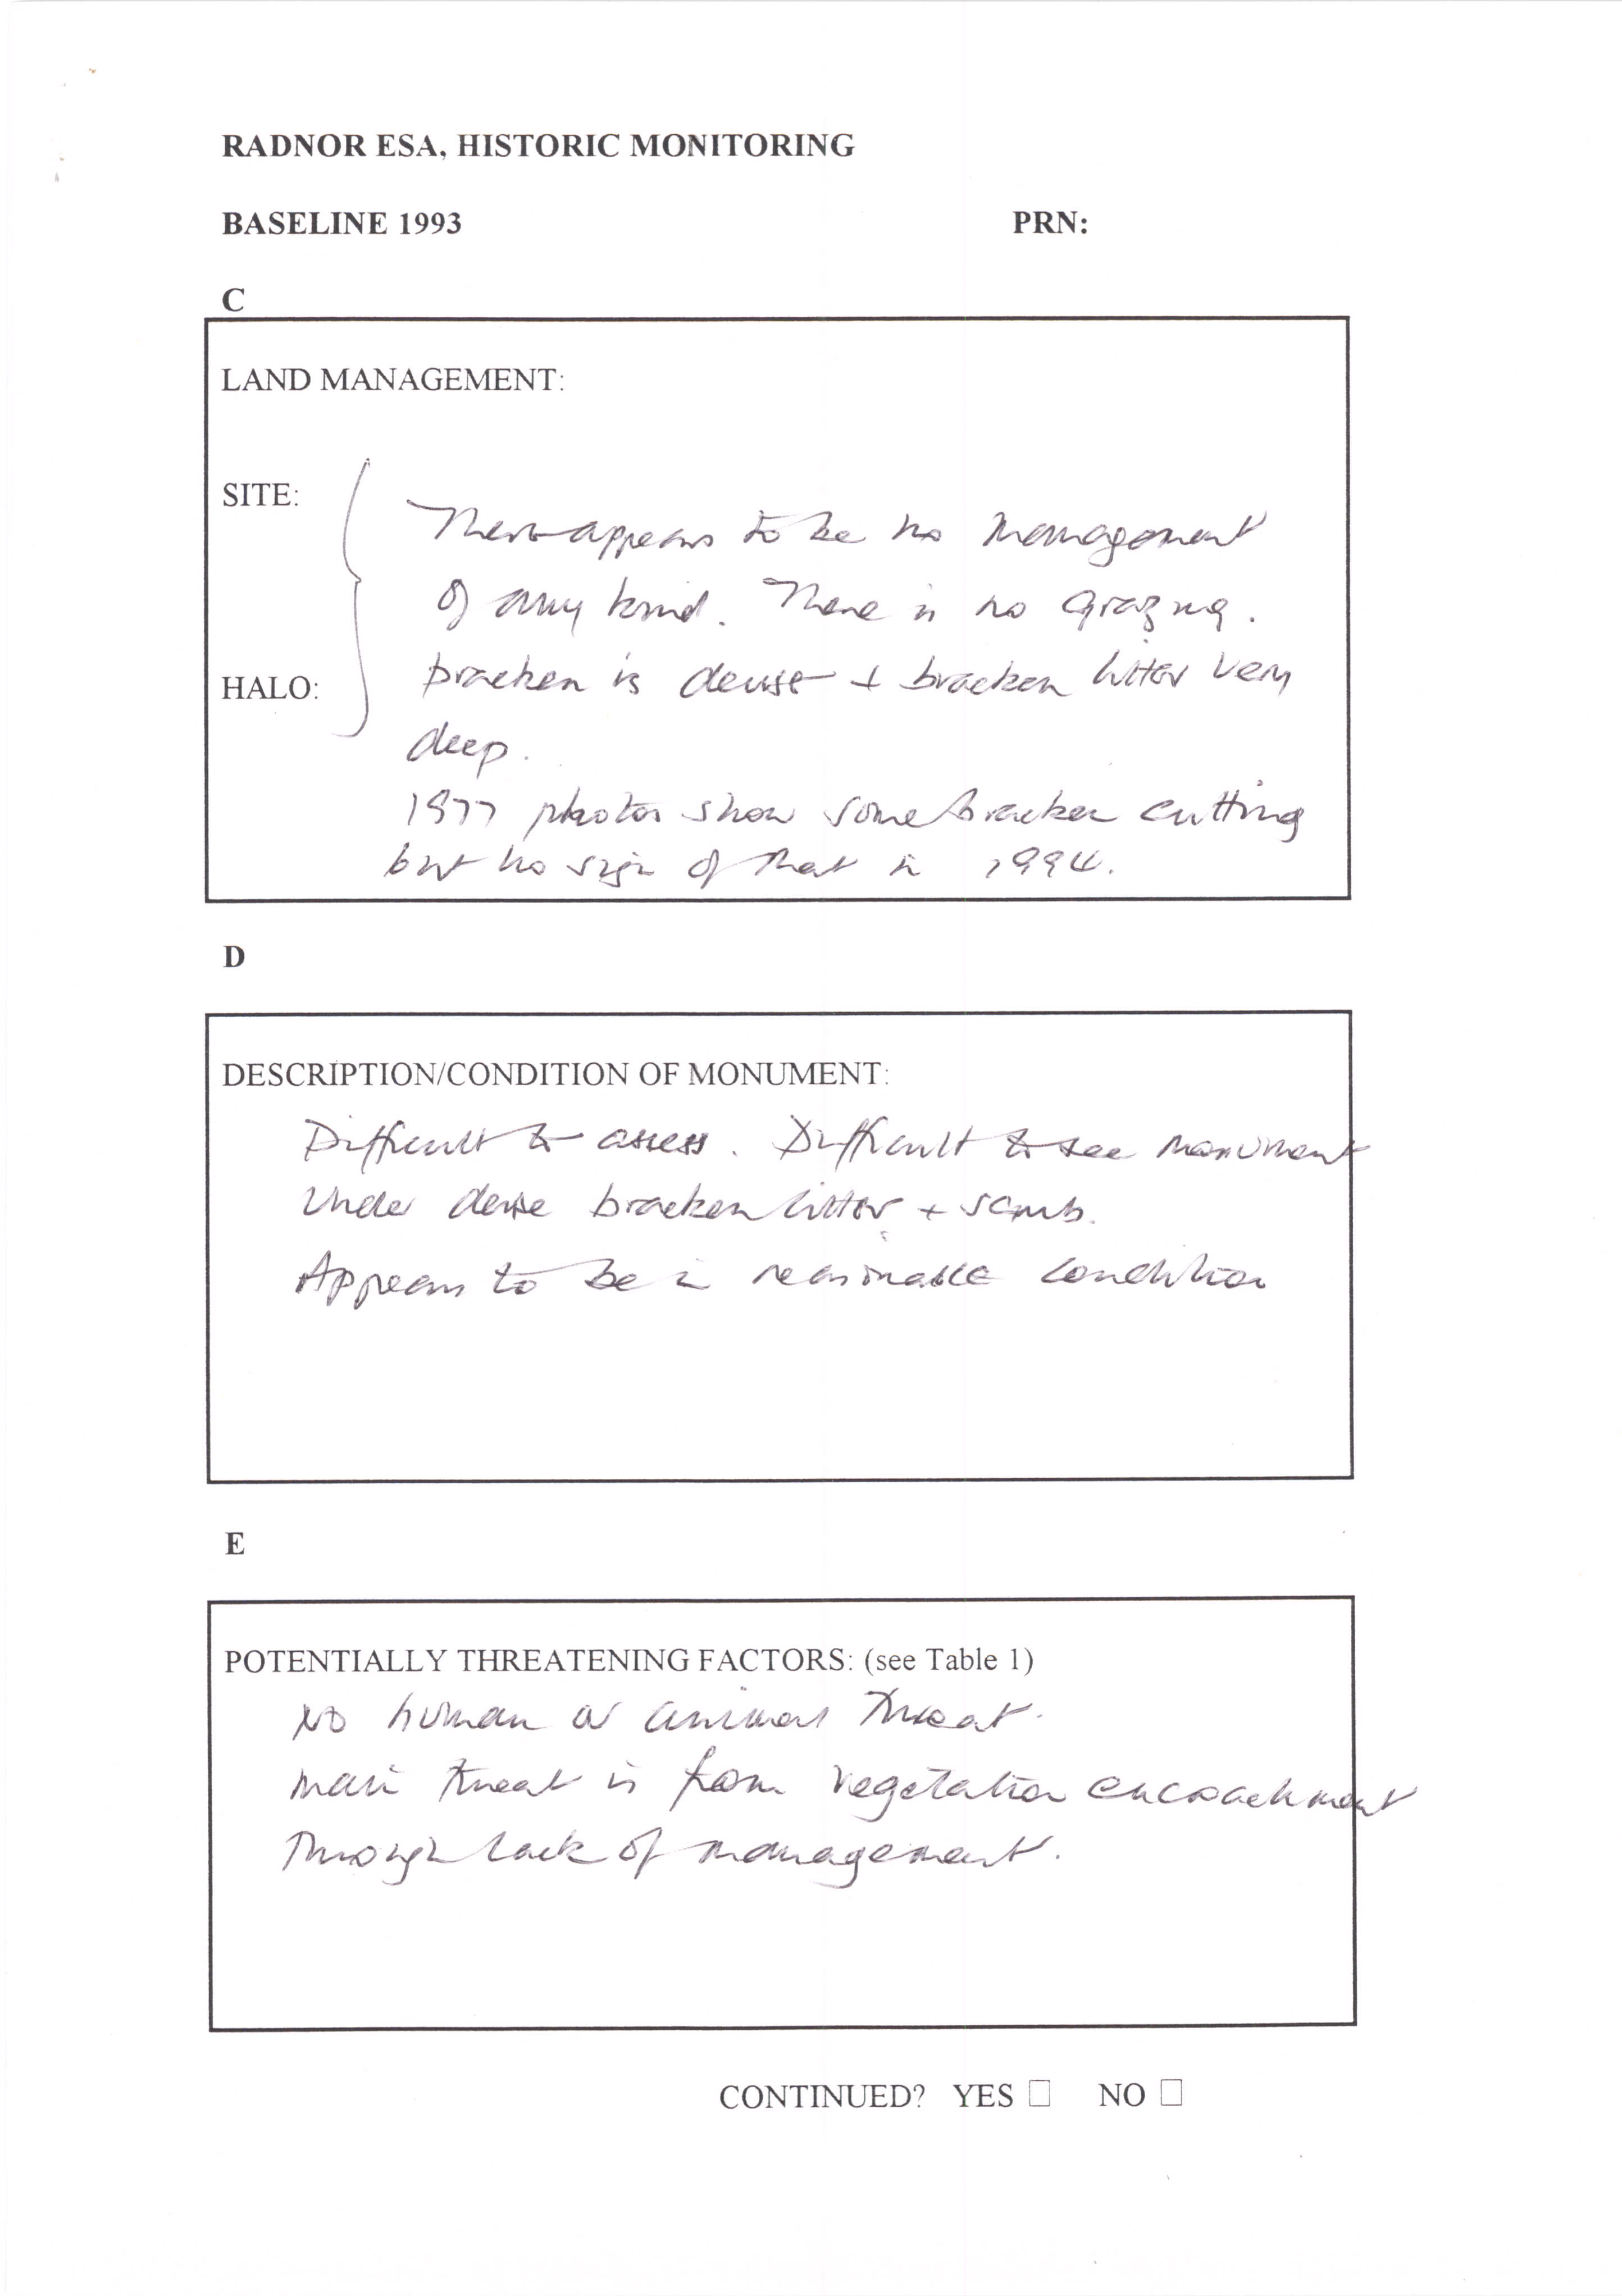 RADNOR ESA, HISTORIC MONITORING
BASELINE 1993 PRN:
C
LAND MANAGEMENT:
SITE:
There appears to be no management
of any kind. There is no grazing.
HALO:
Bracken is dense + bracken litter very
deep.
1977 photos show some bracken cutting
but no sign of that in 1994.
D
DESCRIPTION/CONDITION OF MONUMENT:
Difficult to assess. Difficult to see monument
under dense bracken litter + scrub.
Appears to be in reasonable condition
E
POTENTIALLY THREATENING FACTORS: (see Table 1)
No human or animal threat.
Main threat is from vegetation encroachment
through lack of management.
CONTINUED? YES ☐ NO ☐